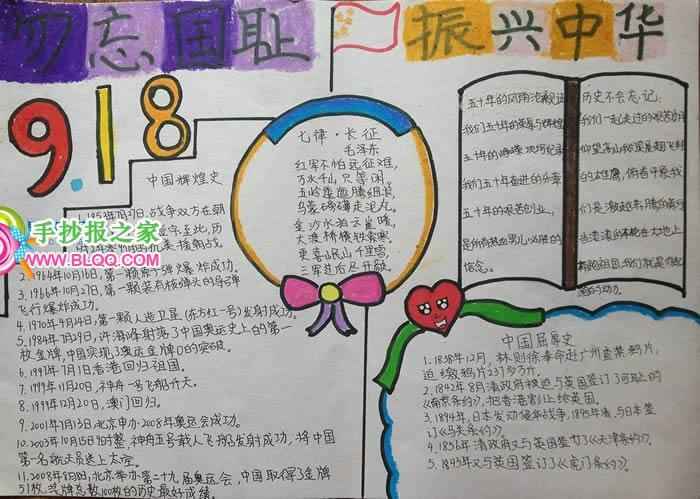 勿忘国耻
振兴中华
9.18
中国辉煌史
1.1953年7月27日,战争双方在朝
手抄报之家
WWW.BLOQ.COM
2.1964年10月16日,第一颗原子弹爆炸成功。
3.1966年10月27日,第一颗装有核弹头的导弹
飞行爆炸成功。
4.1970年4月24日,第一颗人造卫星(东方红一号)发射成功。
5.1984年7月29日,许海峰射落了中国奥运史上的第一
枚金牌,中国实现了奥运金牌0的突破。
6.1997年7月1日香港归祖国。
7.1999年11月20日,神舟一号飞船升天。
8.1999年12月20日,澳门回归。
9.2001年7月13日,北京申办2008年奥运会成功。
10.2003年10月15日9时整,神舟五号载人飞船发射成功,将中国
第一名航天员送上太空。
11.2008年8月8日,北京举办第二十九届奥运会,中国取得了金牌
51枚,奖牌总数100枚的历史最好成绩。
七律·长征
毛泽东
红军不怕远征难,
万水千山只等闲。
五岭逶迤腾细浪,
乌蒙磅礴走泥丸。
金沙水拍云崖暖,
大渡桥横铁索寒。
更喜岷山千里雪,
三军过后尽开颜。
五十年的风雨沧桑
我们五十年的荣辱与辉煌
五十年的峥嵘
我们五十年奋进的乐章
五十年的艰苦创业,
信念。
历史不会忘记:
我们一起走过的艰苦
仰望高山我
的雄鹰,俯看平原我
中国屈辱史
1.1838年12月,林则徐奉命赴广州查禁鸦片,
迫缴鸦片237多万斤。
2.1842年8月清政府被迫与英国签订了可耻的
《南京条约》,把香港割让给英国。
3.1894年,日本发动侵华战争,1895年春与日本签
订《马关条约》
4.1856年清政府又与英国签订了《天津条约》。
5.1843年又与英国签订了《虎门条约》。